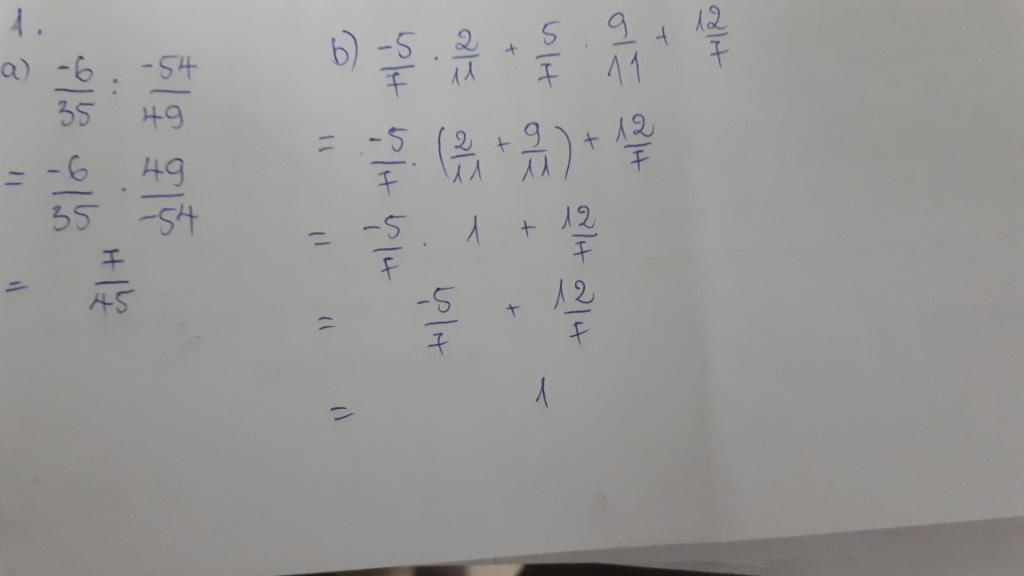 1.
a) -6/35 : -54/49
= -6/35 . 49/-54
= 7/45
b) -5/7 . 2/11 + 5/7 . 9/11 + 12/7
= -5/7 . (2/11 + 9/11) + 12/7
= -5/7 . 1 + 12/7
= -5/7 + 12/7
= 1